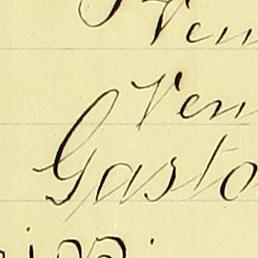 Ven
Ven
Gasto